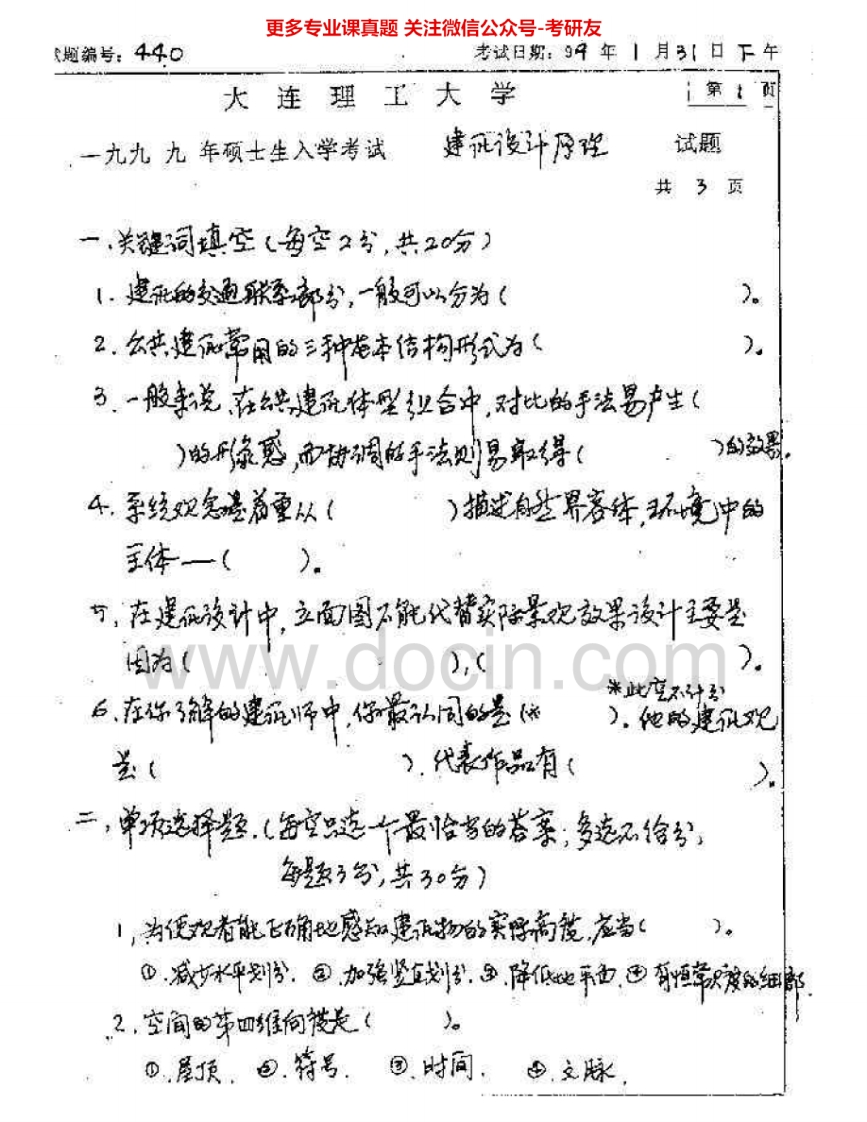 更多专业课真题 关注微信公众号-考研友
试题编号：440 考试日期：99 年 1 月 31 日 下午
大连理工大学 第 1 页
一九九 九 年硕士生入学考试 建筑设计原理 试题
共 3 页
一、关键词填空（每空2分，共20分）
1. 建筑的交通联系部分，一般可以分为（ ）。
2. 公共建筑常用的三种基本结构形式为（ ）。
3. 一般来说，在公共建筑体型组合中，对比的手法易产生（
）的形象感，而协调的手法则易取得（ ）的效果。
4. 系统观念是着重从（ ）描述自然界客体，环境中的
主体——（ ）。
5. 在建筑设计中，立面图不能代替实际景观效果设计主要是
因为（ ），（ ）。
www.docin.com
*此空不计分
6. 在你了解的建筑师中，你最认同的是（* ）。他的建筑观
是（ ）. 代表作品有（ ）。
二、单项选择题.（每空只选一个最恰当的答案；多选不给分，
每题3分，共30分）
1, 为使观者能正确地感知建筑物的实际高度，应当（ ）。
①.减少水平划分. ②.加强竖直划分. ③.降低地平面. ④有恒常尺度的细部.
2. 空间的第四维向被是（ ）。
①.屋顶. ②.符号. ③.时间. ④.文脉.